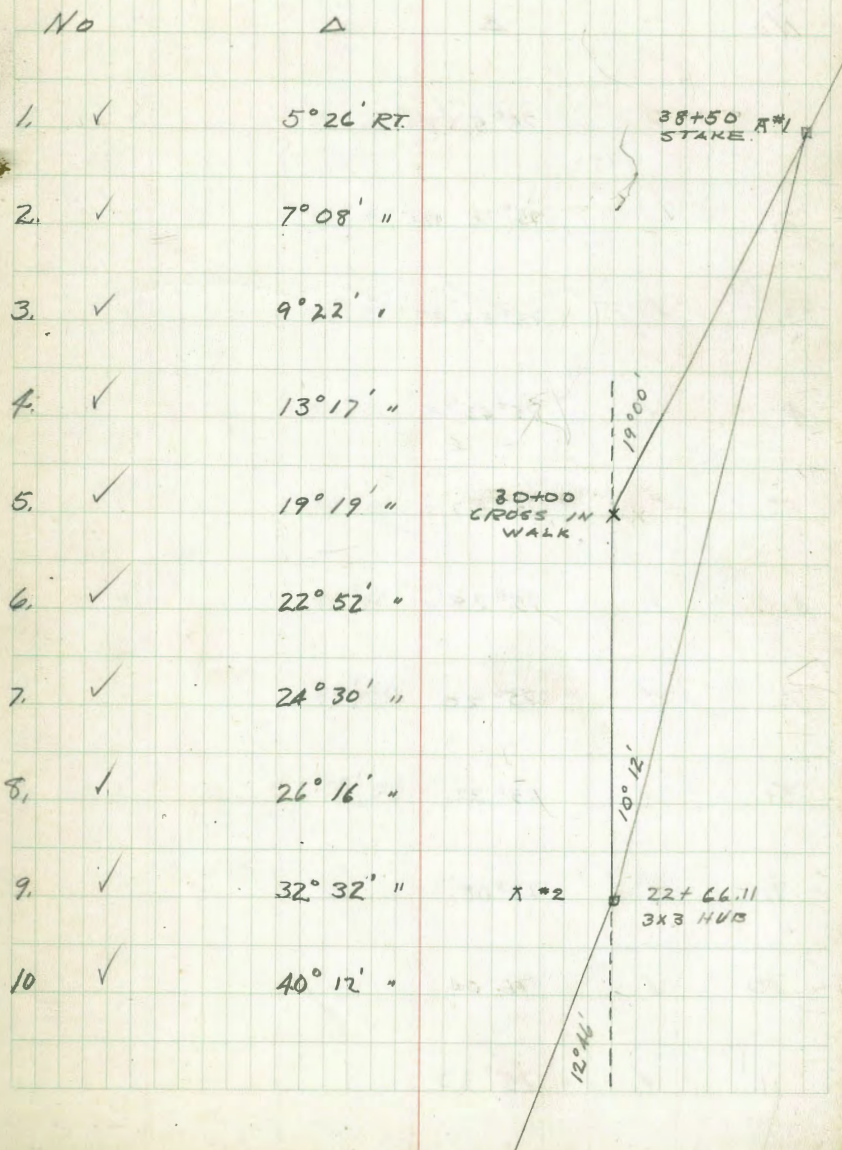 No Δ
1. ✓ 5° 26' RT.
2. ✓ 7° 08' "
3. ✓ 9° 22' "
4. ✓ 13° 17' "
5. ✓ 19° 19' "
6. ✓ 22° 52' "
7. ✓ 24° 30' "
8. ✓ 26° 16' "
9. ✓ 32° 32' "
10 ✓ 40° 12' "
38+50 ⊼ #1
STAKE.
19° 00'
30+00
CROSS IN
WALK
10° 12'
⊼ #2
22+66.11
3X3 HUB
12° 46'